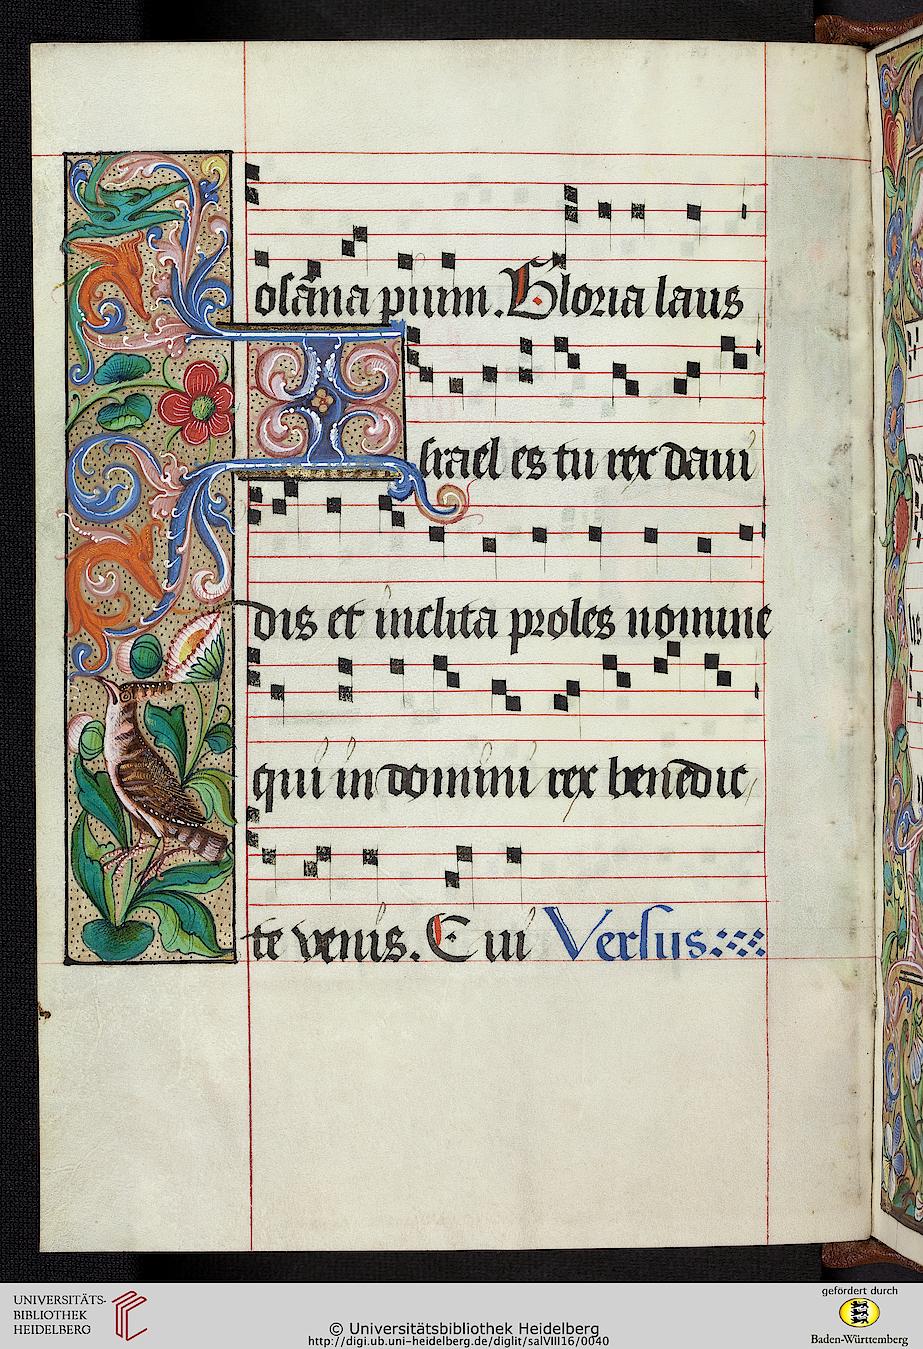 osāna pium. Gloria laus
Israel es tu rex daui
dis et inclita proles nomine
qui in domini rex benedic
te venis. Cui Versus
UNIVERSITÄTS-
BIBLIOTHEK
HEIDELBERG
© Universitätsbibliothek Heidelberg
http://digi.ub.uni-heidelberg.de/diglit/salVIII16/0040
gefördert durch
Baden-Württemberg